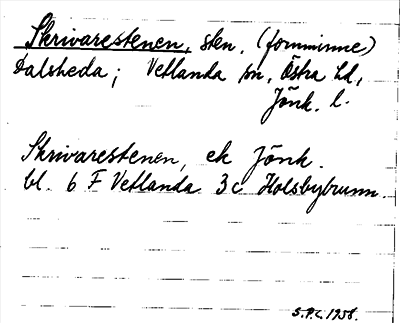 Skrivarestenen, sten. (fornminne)
Dalsheda; Vetlanda sn, Östra hd,
Jönk. l.
Skrivarestenen, ek Jönk.
bl. 6 F Vetlanda 3c Holsbybrunn
S.P.L. 1958.